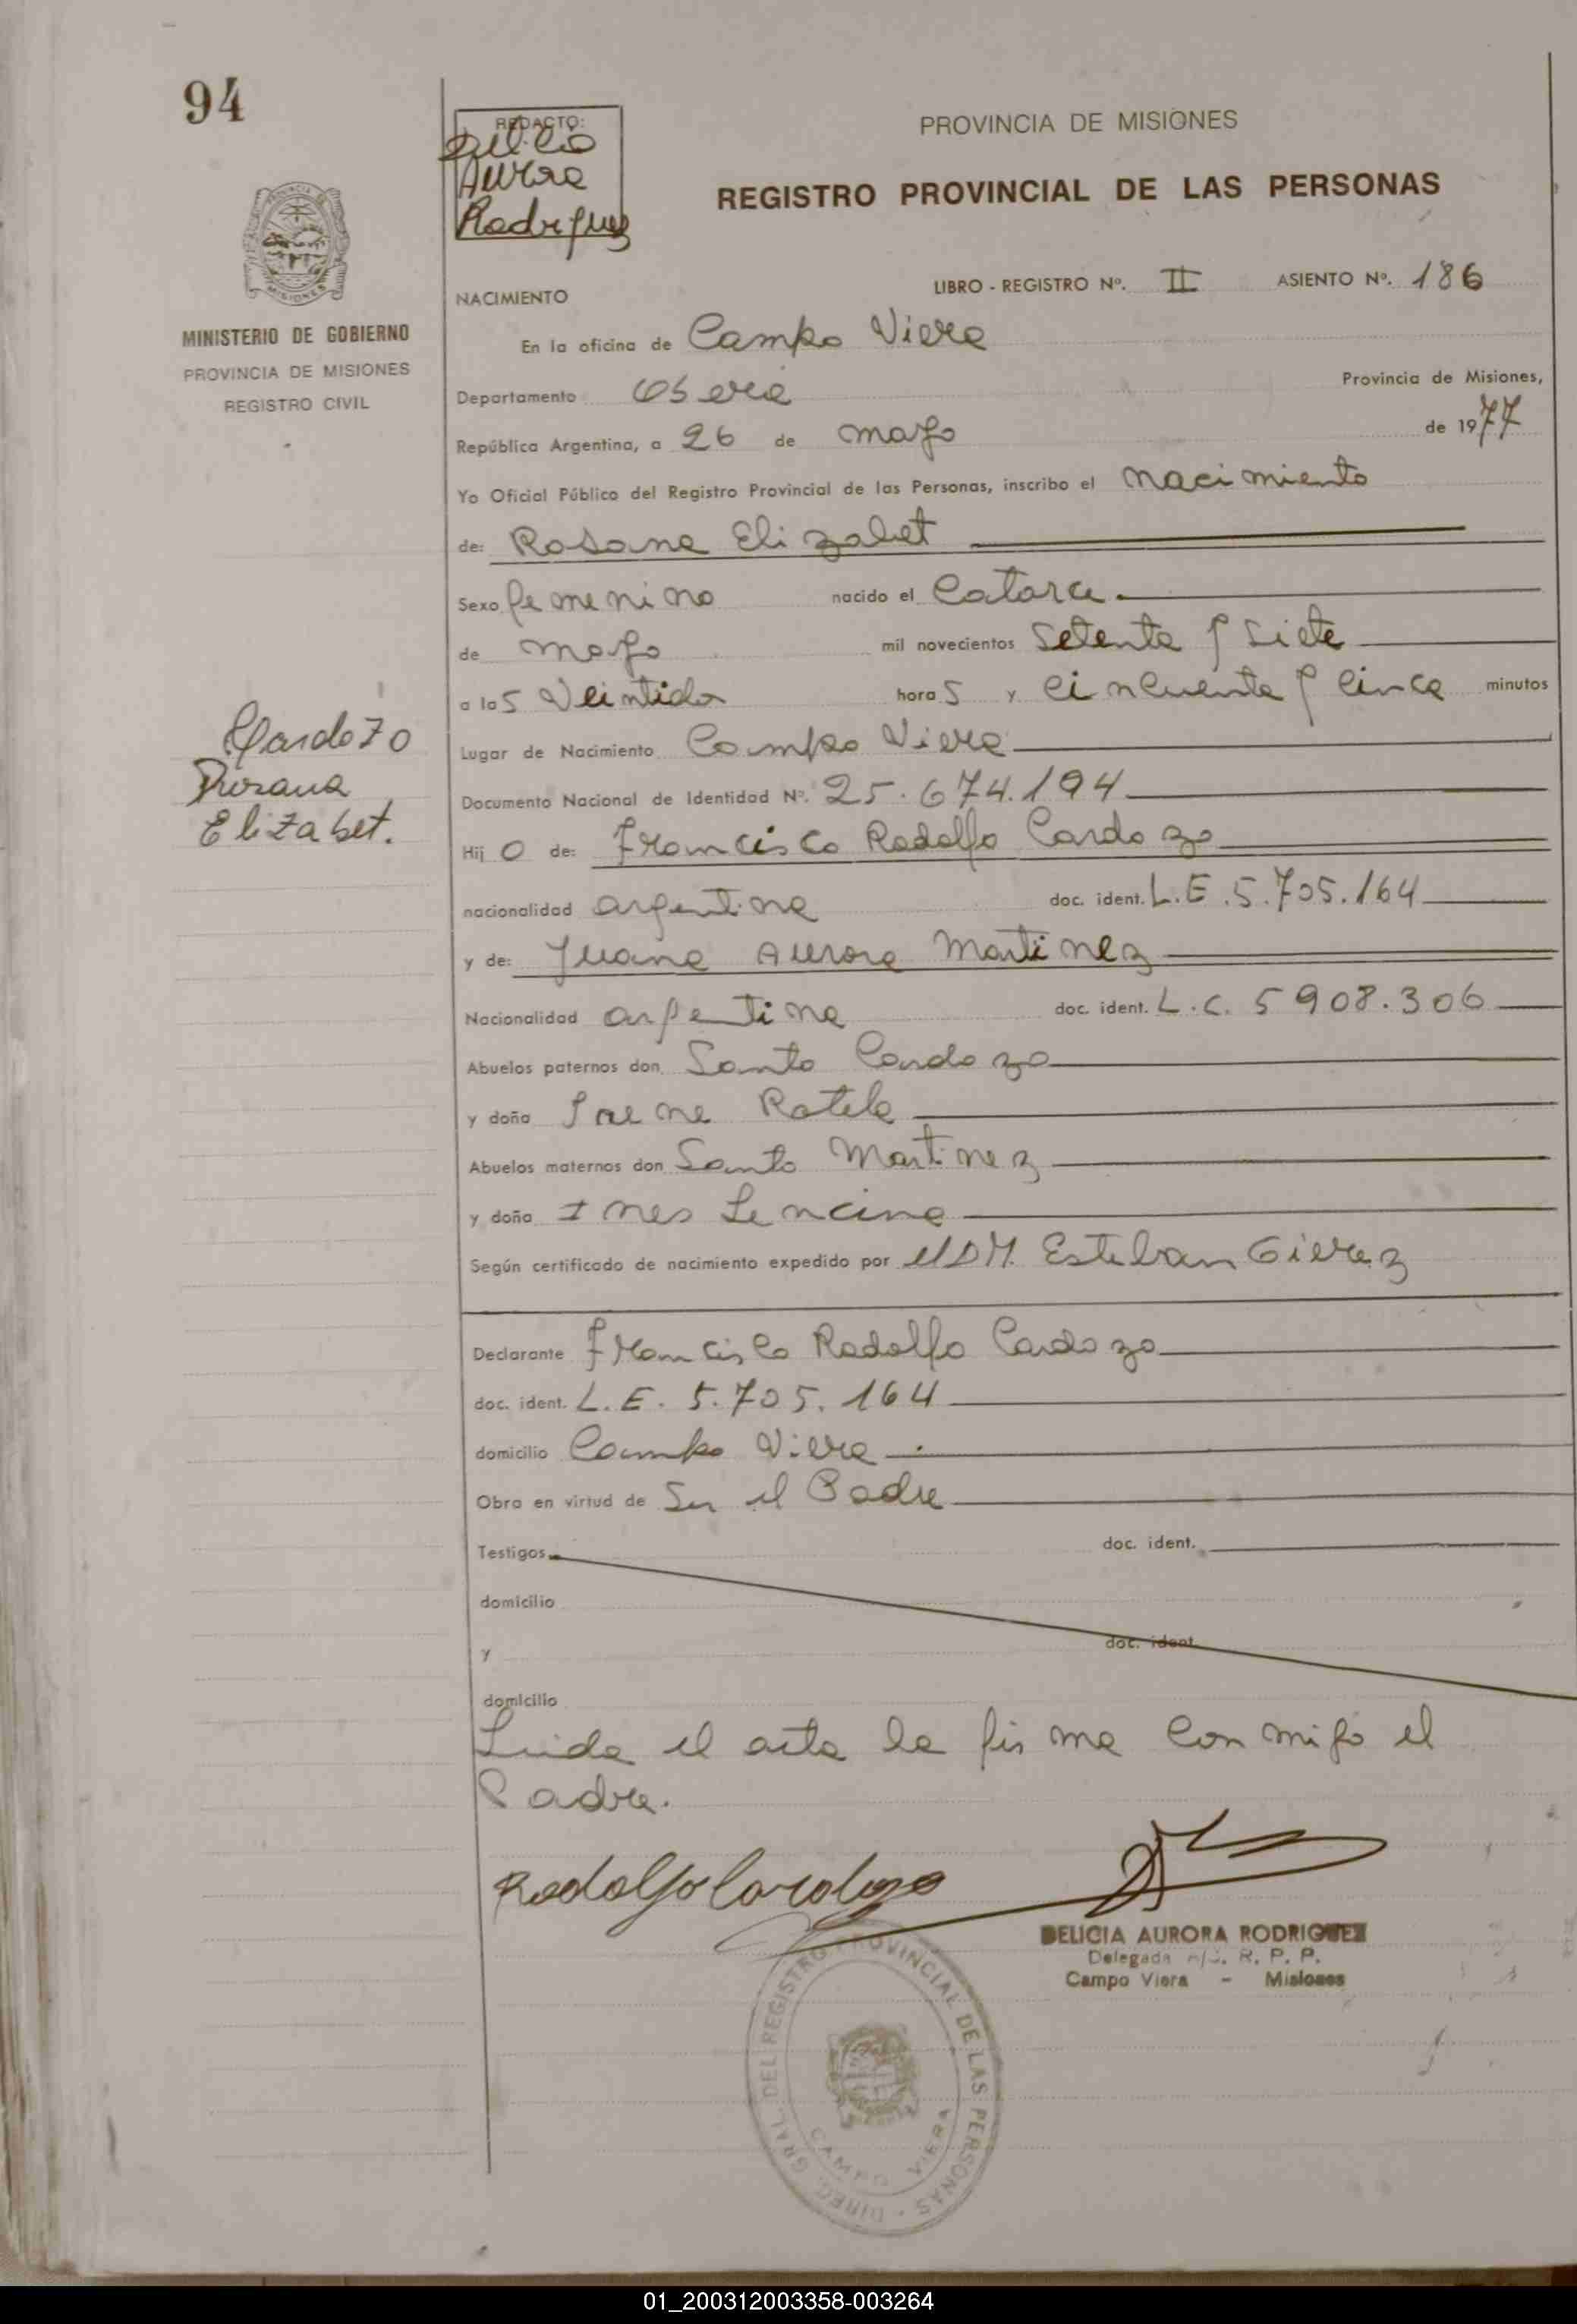 94
REDACTO:
Delicia
Aurora
Rodriguez
PROVINCIA DE MISIONES
REGISTRO PROVINCIAL DE LAS PERSONAS
PROVINCIA
MISIONES
MINISTERIO DE GOBIERNO
PROVINCIA DE MISIONES
REGISTRO CIVIL
LIBRO - REGISTRO Nº. II ASIENTO Nº. 186
NACIMIENTO
En la oficina de Campo Viera
Departamento Obera Provincia de Misiones,
República Argentina, a 26 de mayo de 1977
Yo Oficial Público del Registro Provincial de las Personas, inscribo el nacimiento
de: Rosana Elizabet
Sexo femenino nacido el catorce
de mayo mil novecientos setenta y siete
a las veintidos horas y cincuenta y cinco minutos
Cardozo
Rosana
Elizabet.
Lugar de Nacimiento Campo Viera
Documento Nacional de Identidad Nº. 25.674.194
Hijo de: Francisco Rodolfo Cardozo
nacionalidad argentina doc. ident. L.E. 5.705.164
y de: Juana Aurora Martinez
Nacionalidad argentina doc. ident. L.C. 5908.306
Abuelos paternos don Santo Cardozo
y doña Irene Rotela
Abuelos maternos don Santo Martinez
y doña Ines Lencina
Según certificado de nacimiento expedido por Esteban
Declarante Francisco Rodolfo Cardozo
doc. ident. L.E. 5.705.164
domicilio Campo Viera
Obra en virtud de Ser el Padre
Testigos doc. ident.
domicilio
y doc. ident.
domicilio
Leida el acta la firma conmigo el
Padre.
Rodolfo Cardozo
DELICIA AURORA RODRIGUEZ
Delegada R. P. P.
Campo Viera - Misiones
DIREC. GRAL. DEL REGISTRO PROVINCIAL DE LAS PERSONAS
CAMPO VIERA
01_200312003358-003264